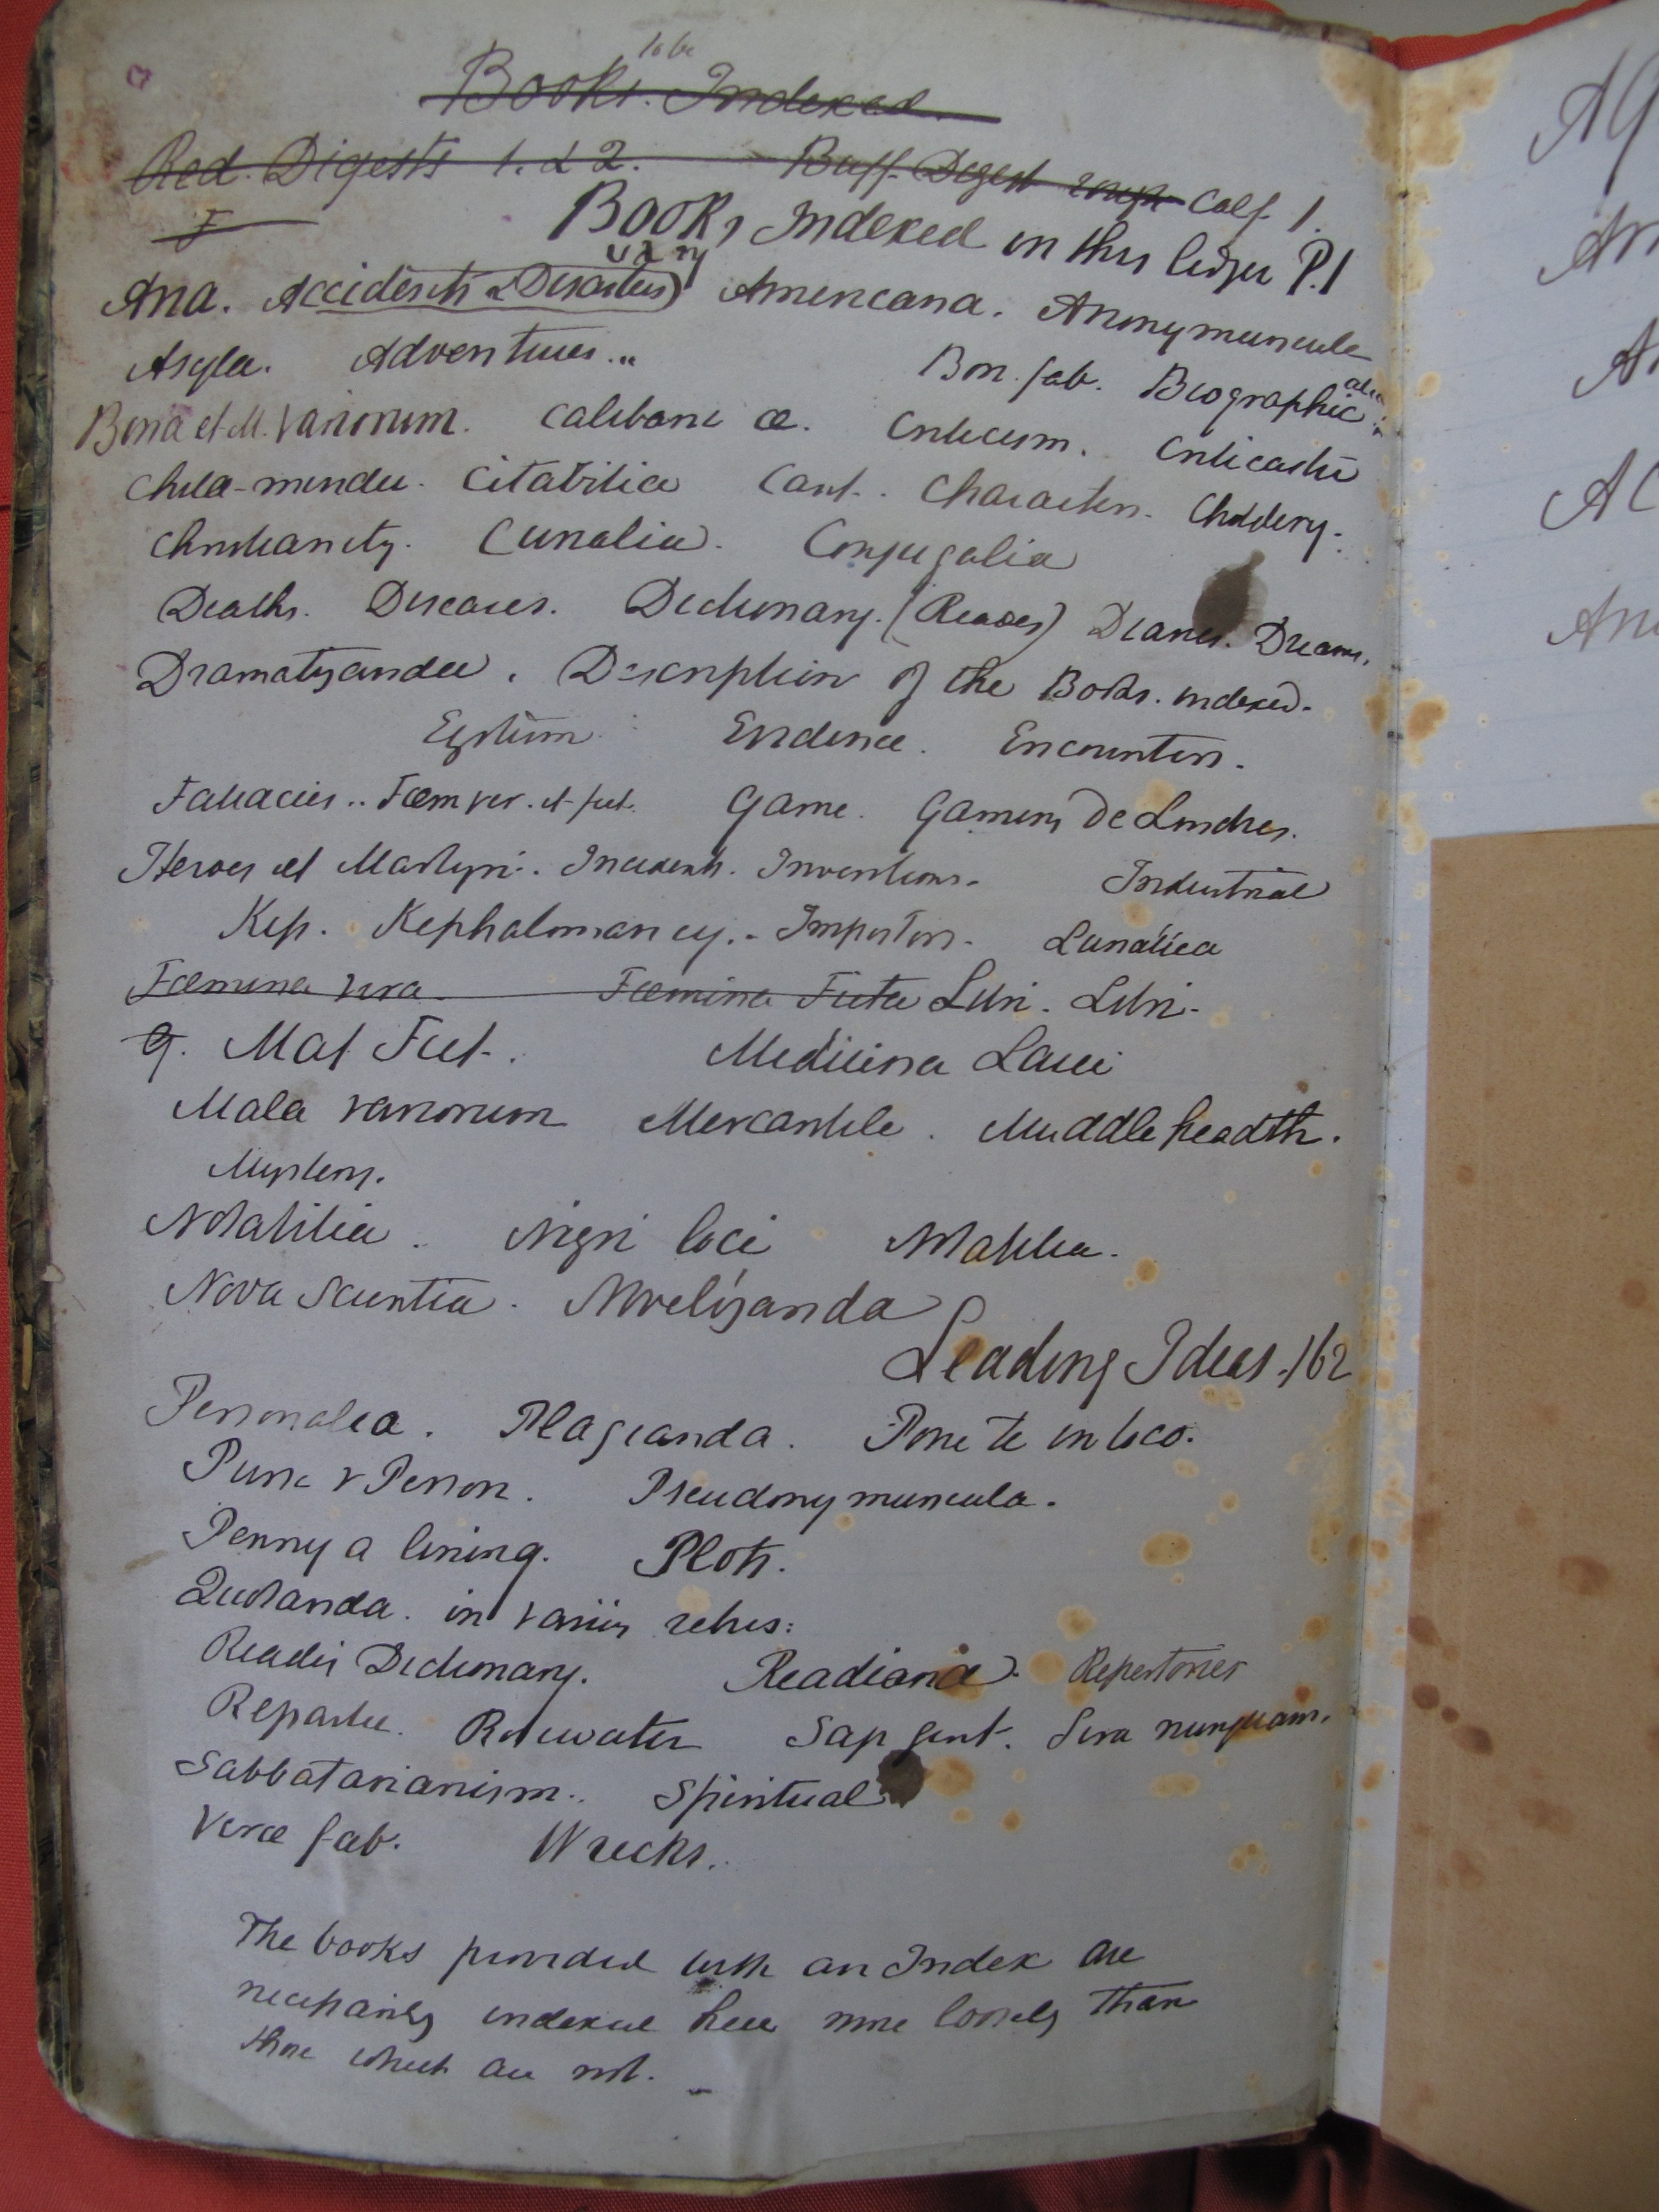 to be
Books. Indexed.
Red. Digests 1. & 2. Buff. Digest rough Calf. 1.
Books Indexed in this ledger P. 1
Ana. Accidents & Disasters Americana. Anonymuncule
Asyla. Adventures..
Bon. fab. Biographic
Bona et M. Variorum. Calibani æ. Criticism. Criticastri
Citabilia Cant. Characters. Christianity. Curialia. Conjugalia
Deaths. Diseases. Dictionary. (Reades) Diaries. Dreams.
Dramatyandæ. Description of the Books. indexed.
Egotism Evidence. Encounters.
Fallacies.. Fæm ver. et fict. Game. Gamins de Londres.
Heroes et Martyri. Incidents. Inventions. Industrial
Kep. Kephalomancy.. Impostors. Lunatica
Fæmina vera. Fæmina Ficta Libri. Libri.
g. Mat Fict. Medicina Laici
Mala variorum Mercantile. Muddleheadth.
Mystery.
Notabilia. Nigri loci Notabilia.
Nova Scientia. Novelisanda
Leading Ideas. 162
Personalia. Plagianda. Pone te in loco.
Purse v Person. Pseudonymuncula.
Penny a lining. Plots.
Quotanda. in variis rebus:
Reades Dictionary. Readiana. Repertories
Repartee. Rosewater Sap gent. Sera nunquam.
Sabbatarianism.. Spiritual
Veræ fab. Wrecks.
The books provided with an Index are
necessarily indexed here more loosely than
those which are not.